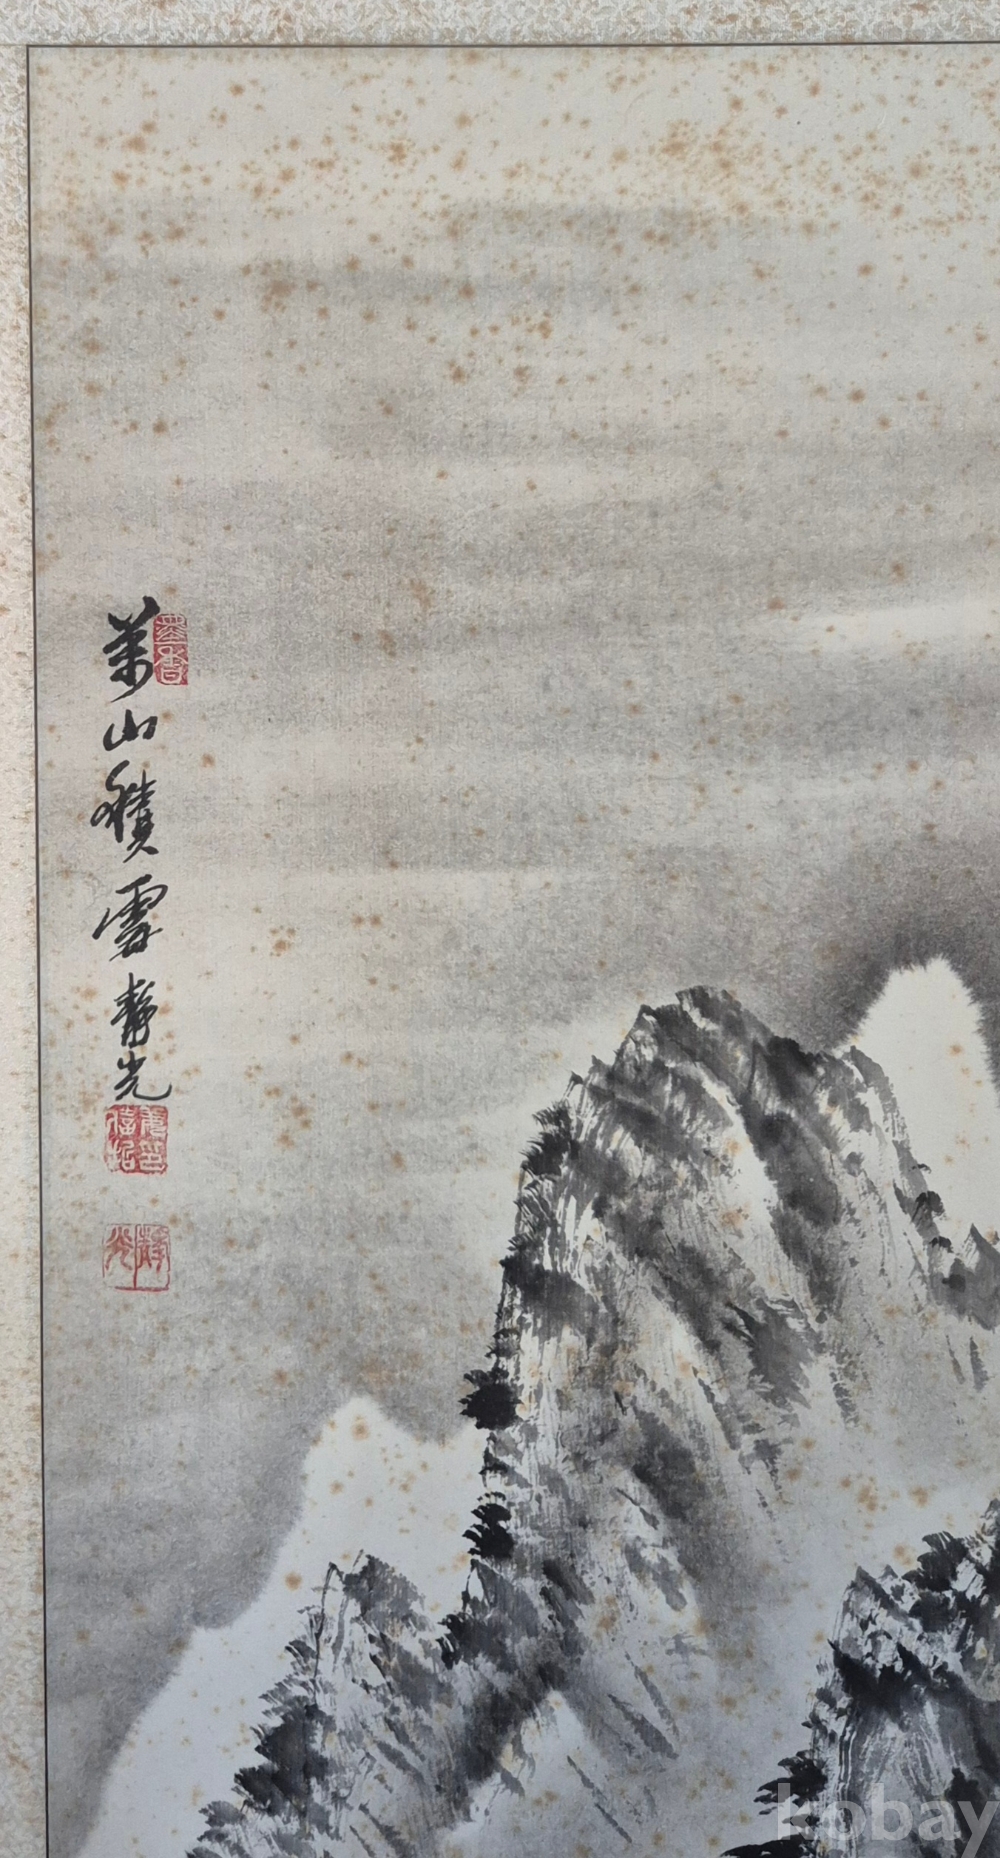 萬山積雪 靜光
墨香
靜光
kobay